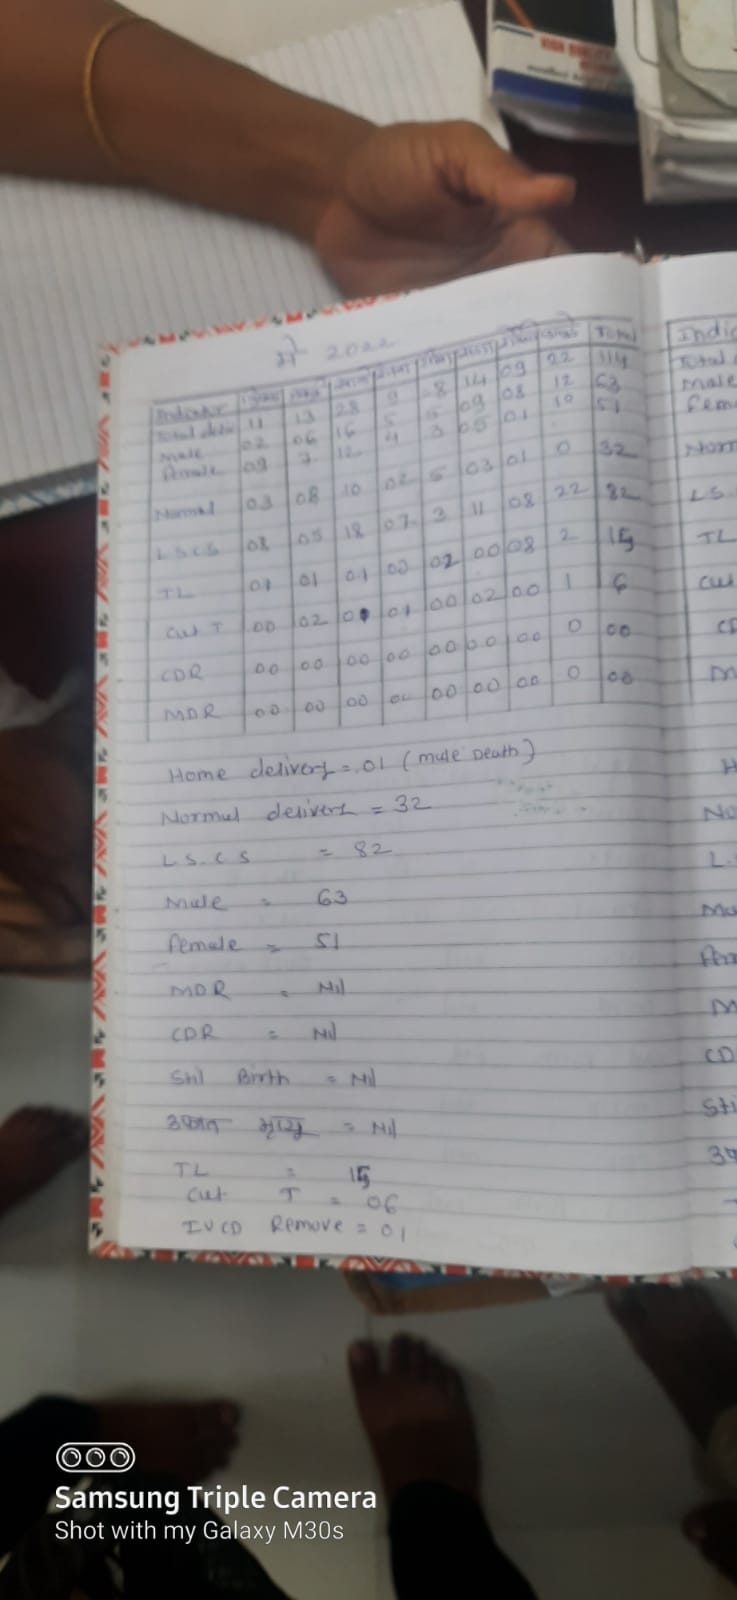 मे 2022
Indicator Total
Total deliv 11 13 28 9 8 14 09 22 114
Male 02 06 16 5 5 09 08 12 63
female 09 7 12 4 3 05 01 10 51
Normal 03 08 10 02 5 03 01 0 32
LSCS 08 05 18 07 3 11 08 22 82
TL 01 01 01 00 02 00 08 2 15
Cut T 00 02 01 00 02 00 1 6
CDR 00 00 00 00 00 00 00 0 00
MDR 00 00 00 00 00 00 00 0 00
Home delivery = 01 (male Death)
Normal delivery = 32
L S C S = 82
Male = 63
female = 51
MDR = Nil
CDR = Nil
Stil Birth = Nil
मृत्यु = Nil
TL = 15
Cut T = 06
IUCD Remove = 01
Indic
Total
male
fem
Norm
L.S.
TL
Cut
CD
M
H
No
L.
Ma
fem
M
CD
Sti
Samsung Triple Camera
Shot with my Galaxy M30s